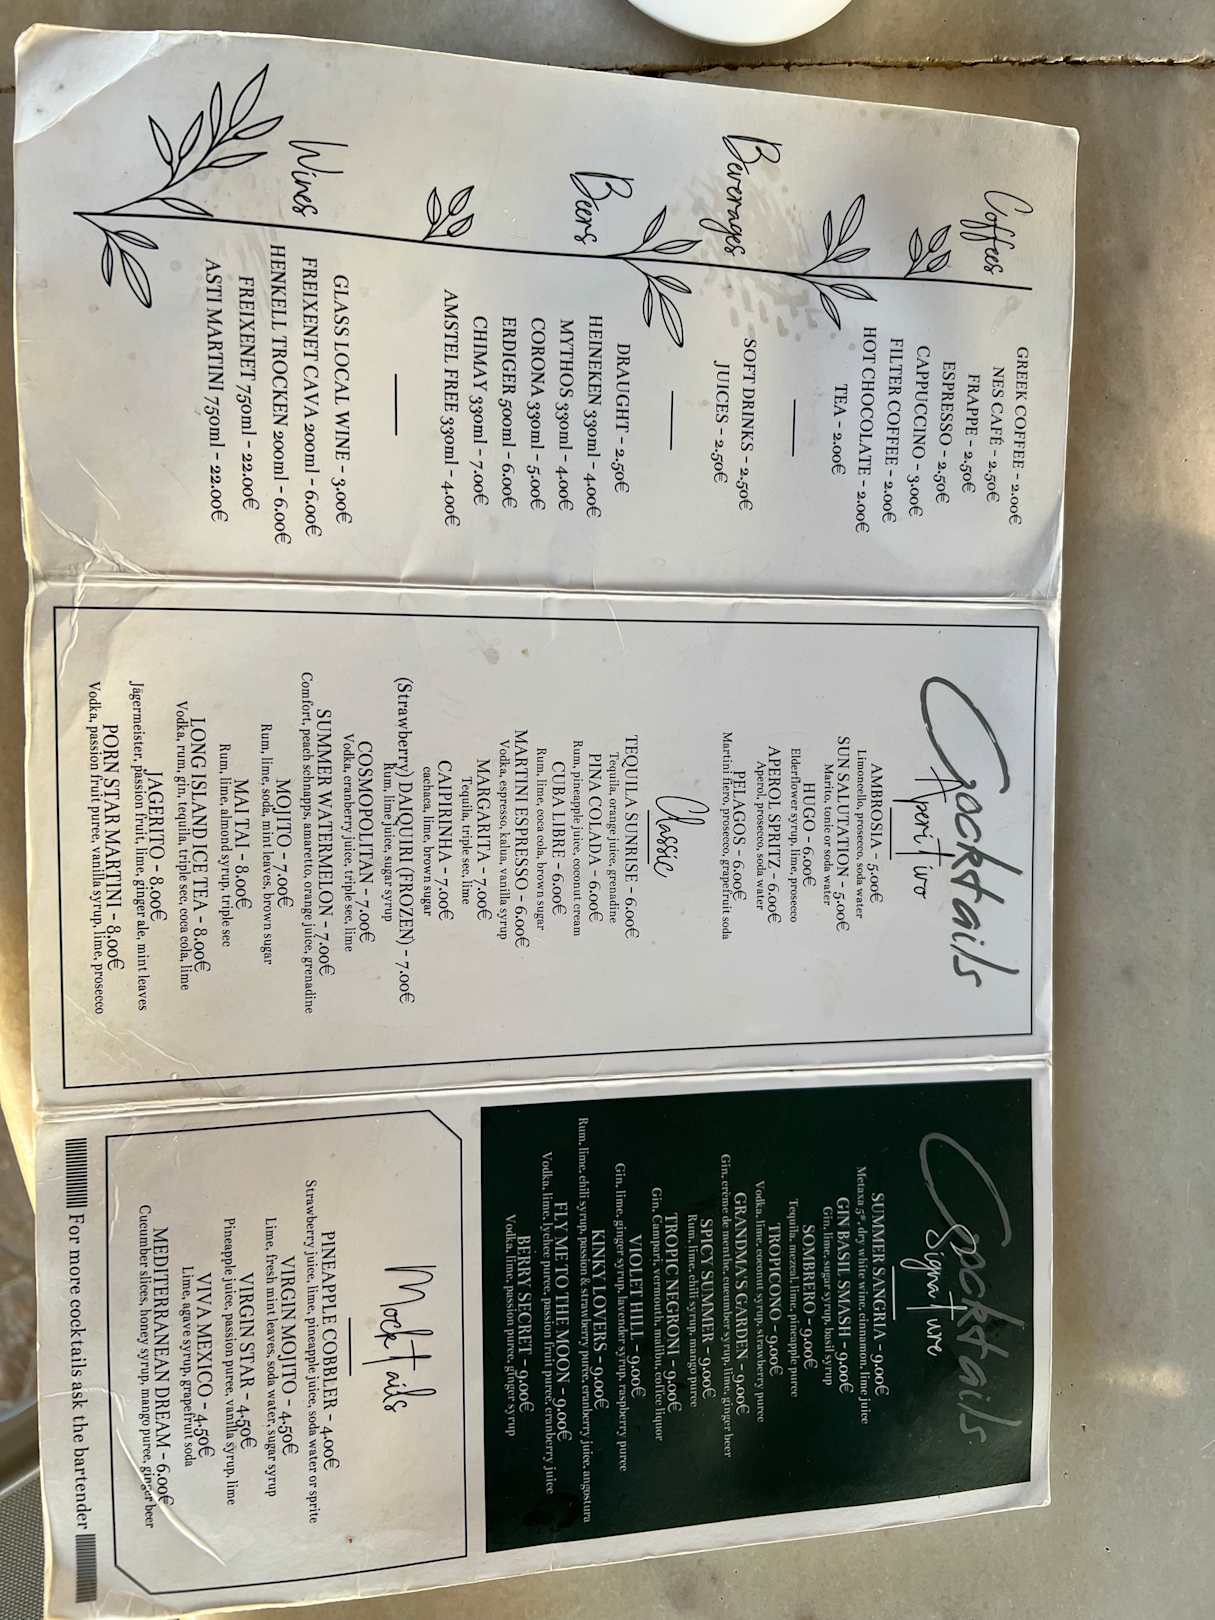 Coffees
GREEK COFFEE - 2.00€
NES CAFÉ - 2.50€
FRAPPE - 2.50€
ESPRESSO - 2.50€
CAPPUCCINO - 3.00€
FILTER COFFEE - 2.00€
HOT CHOCOLATE - 2.00€
TEA - 2.00€
Beverages
SOFT DRINKS - 2.50€
JUICES - 2.50€
Beers
DRAUGHT - 2.50€
HEINEKEN 330ml - 4.00€
MYTHOS 330ml - 4.00€
CORONA 330ml - 5.00€
ERDIGER 500ml - 6.00€
CHIMAY 330ml - 7.00€
AMSTEL FREE 330ml - 4.00€
Wines
GLASS LOCAL WINE - 3.00€
FREIXENET CAVA 200ml - 6.00€
HENKELL TROCKEN 200ml - 6.00€
FREIXENET 750ml - 22.00€
ASTI MARTINI 750ml - 22.00€
Cocktails
Aperitivo
AMBROSIA - 5.00€
Limoncello, prosecco, soda water
SUN SALUTATION - 5.00€
Marito, tonic or soda water
HUGO - 6.00€
Elderflower syrup, lime, prosecco
APEROL SPRITZ - 6.00€
Aperol, prosecco, soda water
PELAGOS - 6.00€
Martini fiero, prosecco, grapefruit soda
Classic
TEQUILA SUNRISE - 6.00€
Tequila, orange juice, grenadine
PINA COLADA - 6.00€
Rum, pineapple juice, coconut cream
CUBA LIBRE - 6.00€
Rum, lime, coca cola, brown sugar
MARTINI ESPRESSO - 6.00€
Vodka, espresso, kalua, vanilla syrup
MARGARITA - 7.00€
Tequila, triple sec, lime
CAIPIRINHA - 7.00€
cachaca, lime, brown sugar
(Strawberry) DAIQUIRI (FROZEN) - 7.00€
Rum, lime juice, sugar syrup
COSMOPOLITAN - 7.00€
Vodka, cranberry juice, triple sec, lime
SUMMER WATERMELON - 7.00€
Comfort, peach schnapps, amaretto, orange juice, grenadine
MOJITO - 7.00€
Rum, lime, soda, mint leaves, brown sugar
MAI TAI - 8.00€
Rum, lime, almond syrup, triple sec
LONG ISLAND ICE TEA - 8.00€
Vodka, rum, gin, tequila, triple sec, coca cola, lime
JAGERITO - 8.00€
Jägermeister, passion fruit, lime, ginger ale, mint leaves
PORN STAR MARTINI - 8.00€
Vodka, passion fruit puree, vanilla syrup, lime, prosecco
Cocktails
Signature
SUMMER SANGRIA - 9.00€
Metaxa 5*, dry white wine, cinnamon, lime juice
GIN BASIL SMASH - 9.00€
Gin, lime, sugar syrup, basil syrup
SOMBRERO - 9.00€
Tequila, mezcal, lime, pineapple puree
TROPICONO - 9.00€
Vodka, lime, coconut syrup, strawberry puree
GRANDMA'S GARDEN - 9.00€
Gin, crème de menthe, cucumber syrup, lime, ginger beer
SPICY SUMMER - 9.00€
Rum, lime, chili syrup, mango puree
TROPIC NEGRONI - 9.00€
Gin, Campari, vermouth, malibu, coffee liquor
VIOLET HILL - 9.00€
Gin, lime, ginger syrup, lavender syrup, raspberry puree
KINKY LOVERS - 9.00€
Rum, lime, chili syrup, passion & strawberry puree, cranberry juice, angostura
FLY ME TO THE MOON - 9.00€
Vodka, lime, lychee puree, passion fruit puree, cranberry juice
BERRY SECRET - 9.00€
Vodka, lime, passion puree, ginger syrup
Mocktails
PINEAPPLE COBBLER - 4.00€
Strawberry juice, lime, pineapple juice, soda water or sprite
VIRGIN MOJITO - 4.50€
Lime, fresh mint leaves, soda water, sugar syrup
VIRGIN STAR - 4.50€
Pineapple juice, passion puree, vanilla syrup, lime
VIVA MEXICO - 4.50€
Lime, agave syrup, grapefruit soda
MEDITERRANEAN DREAM - 6.00€
Cucumber slices, honey syrup, mango puree, ginger beer
For more cocktails ask the bartender